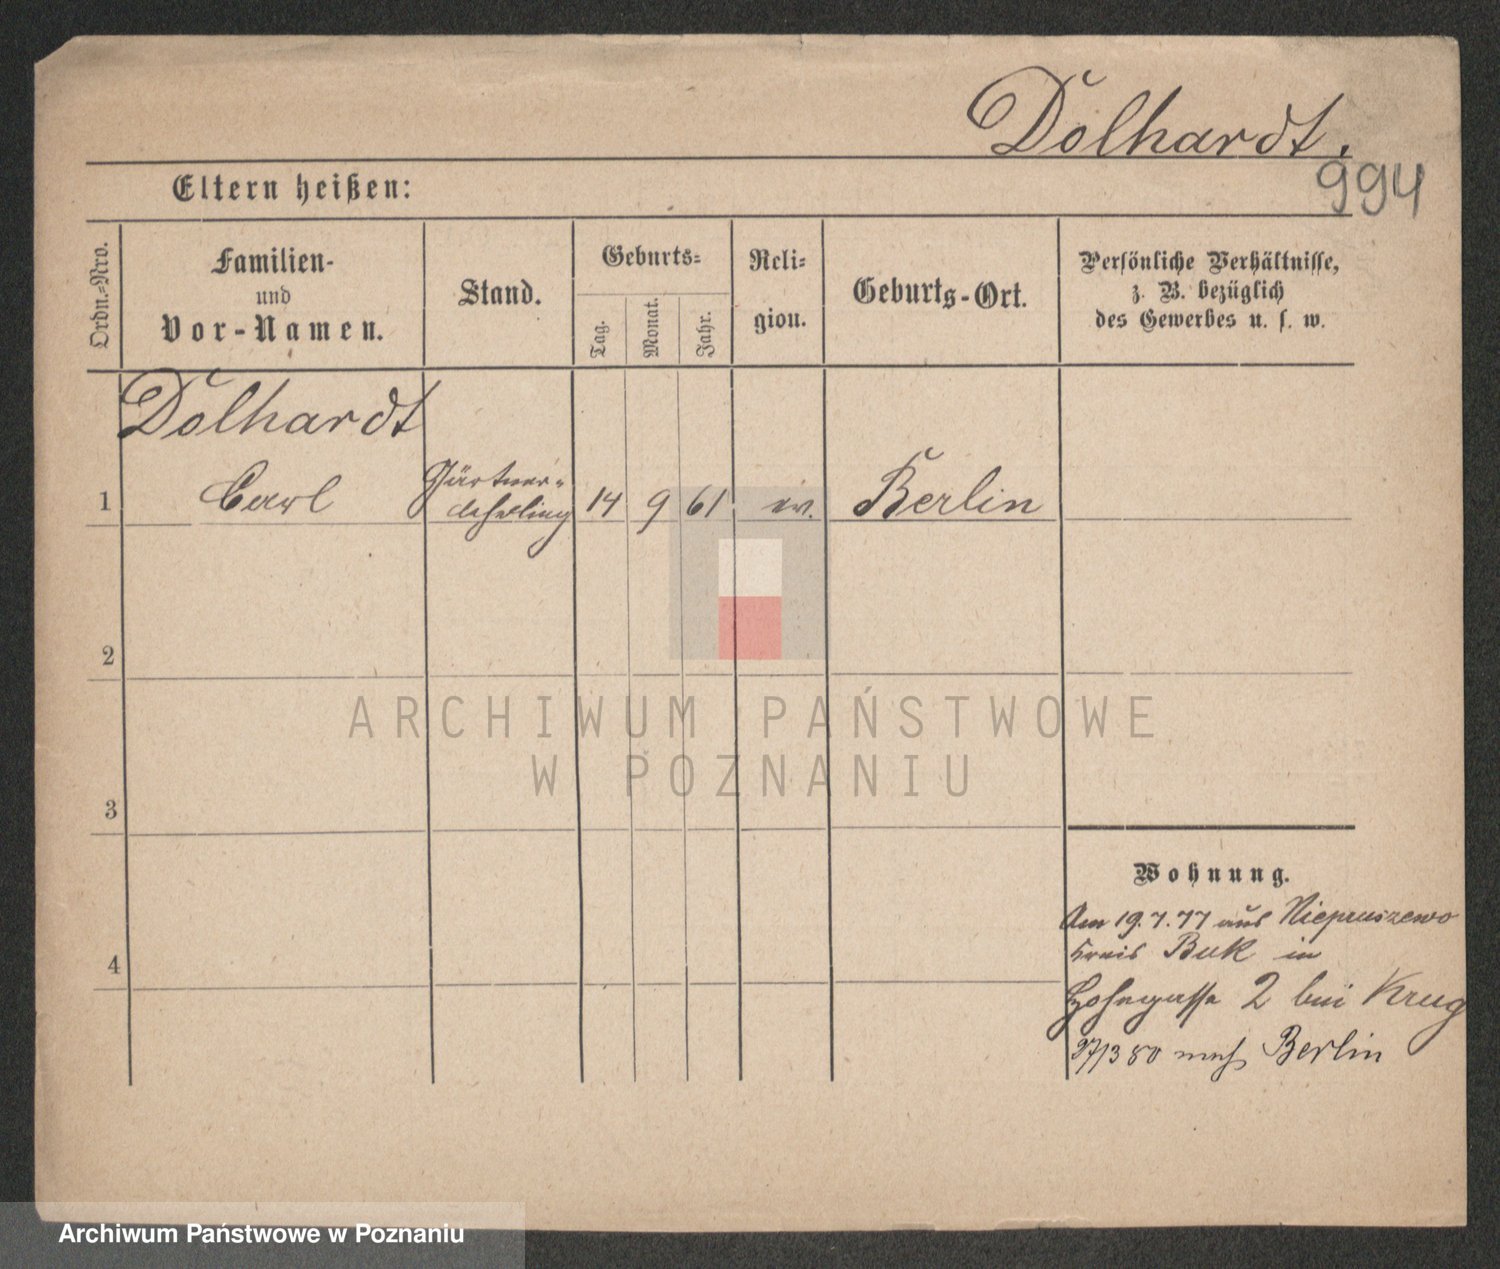 Dolhardt.
994
Eltern heißen:
Ordn.-Nro.
Familien-
und
Vor-Namen.
Stand.
Geburts-
Tag.
Monat.
Jahr.
Reli-
gion.
Geburts-Ort.
Persönliche Verhältnisse,
z. B. bezüglich
des Gewerbes u. s. w.
Dolhardt
1 Carl Gärtner-
lehrling 14 9 61 ev. Berlin
2
3
4
Wohnung.
Am 19.7.77 aus Niepruszewo
Kreis Buk in
2 bei Krug
27/3 80 nach Berlin
ARCHIWUM PAŃSTWOWE
W POZNANIU
Archiwum Państwowe w Poznaniu